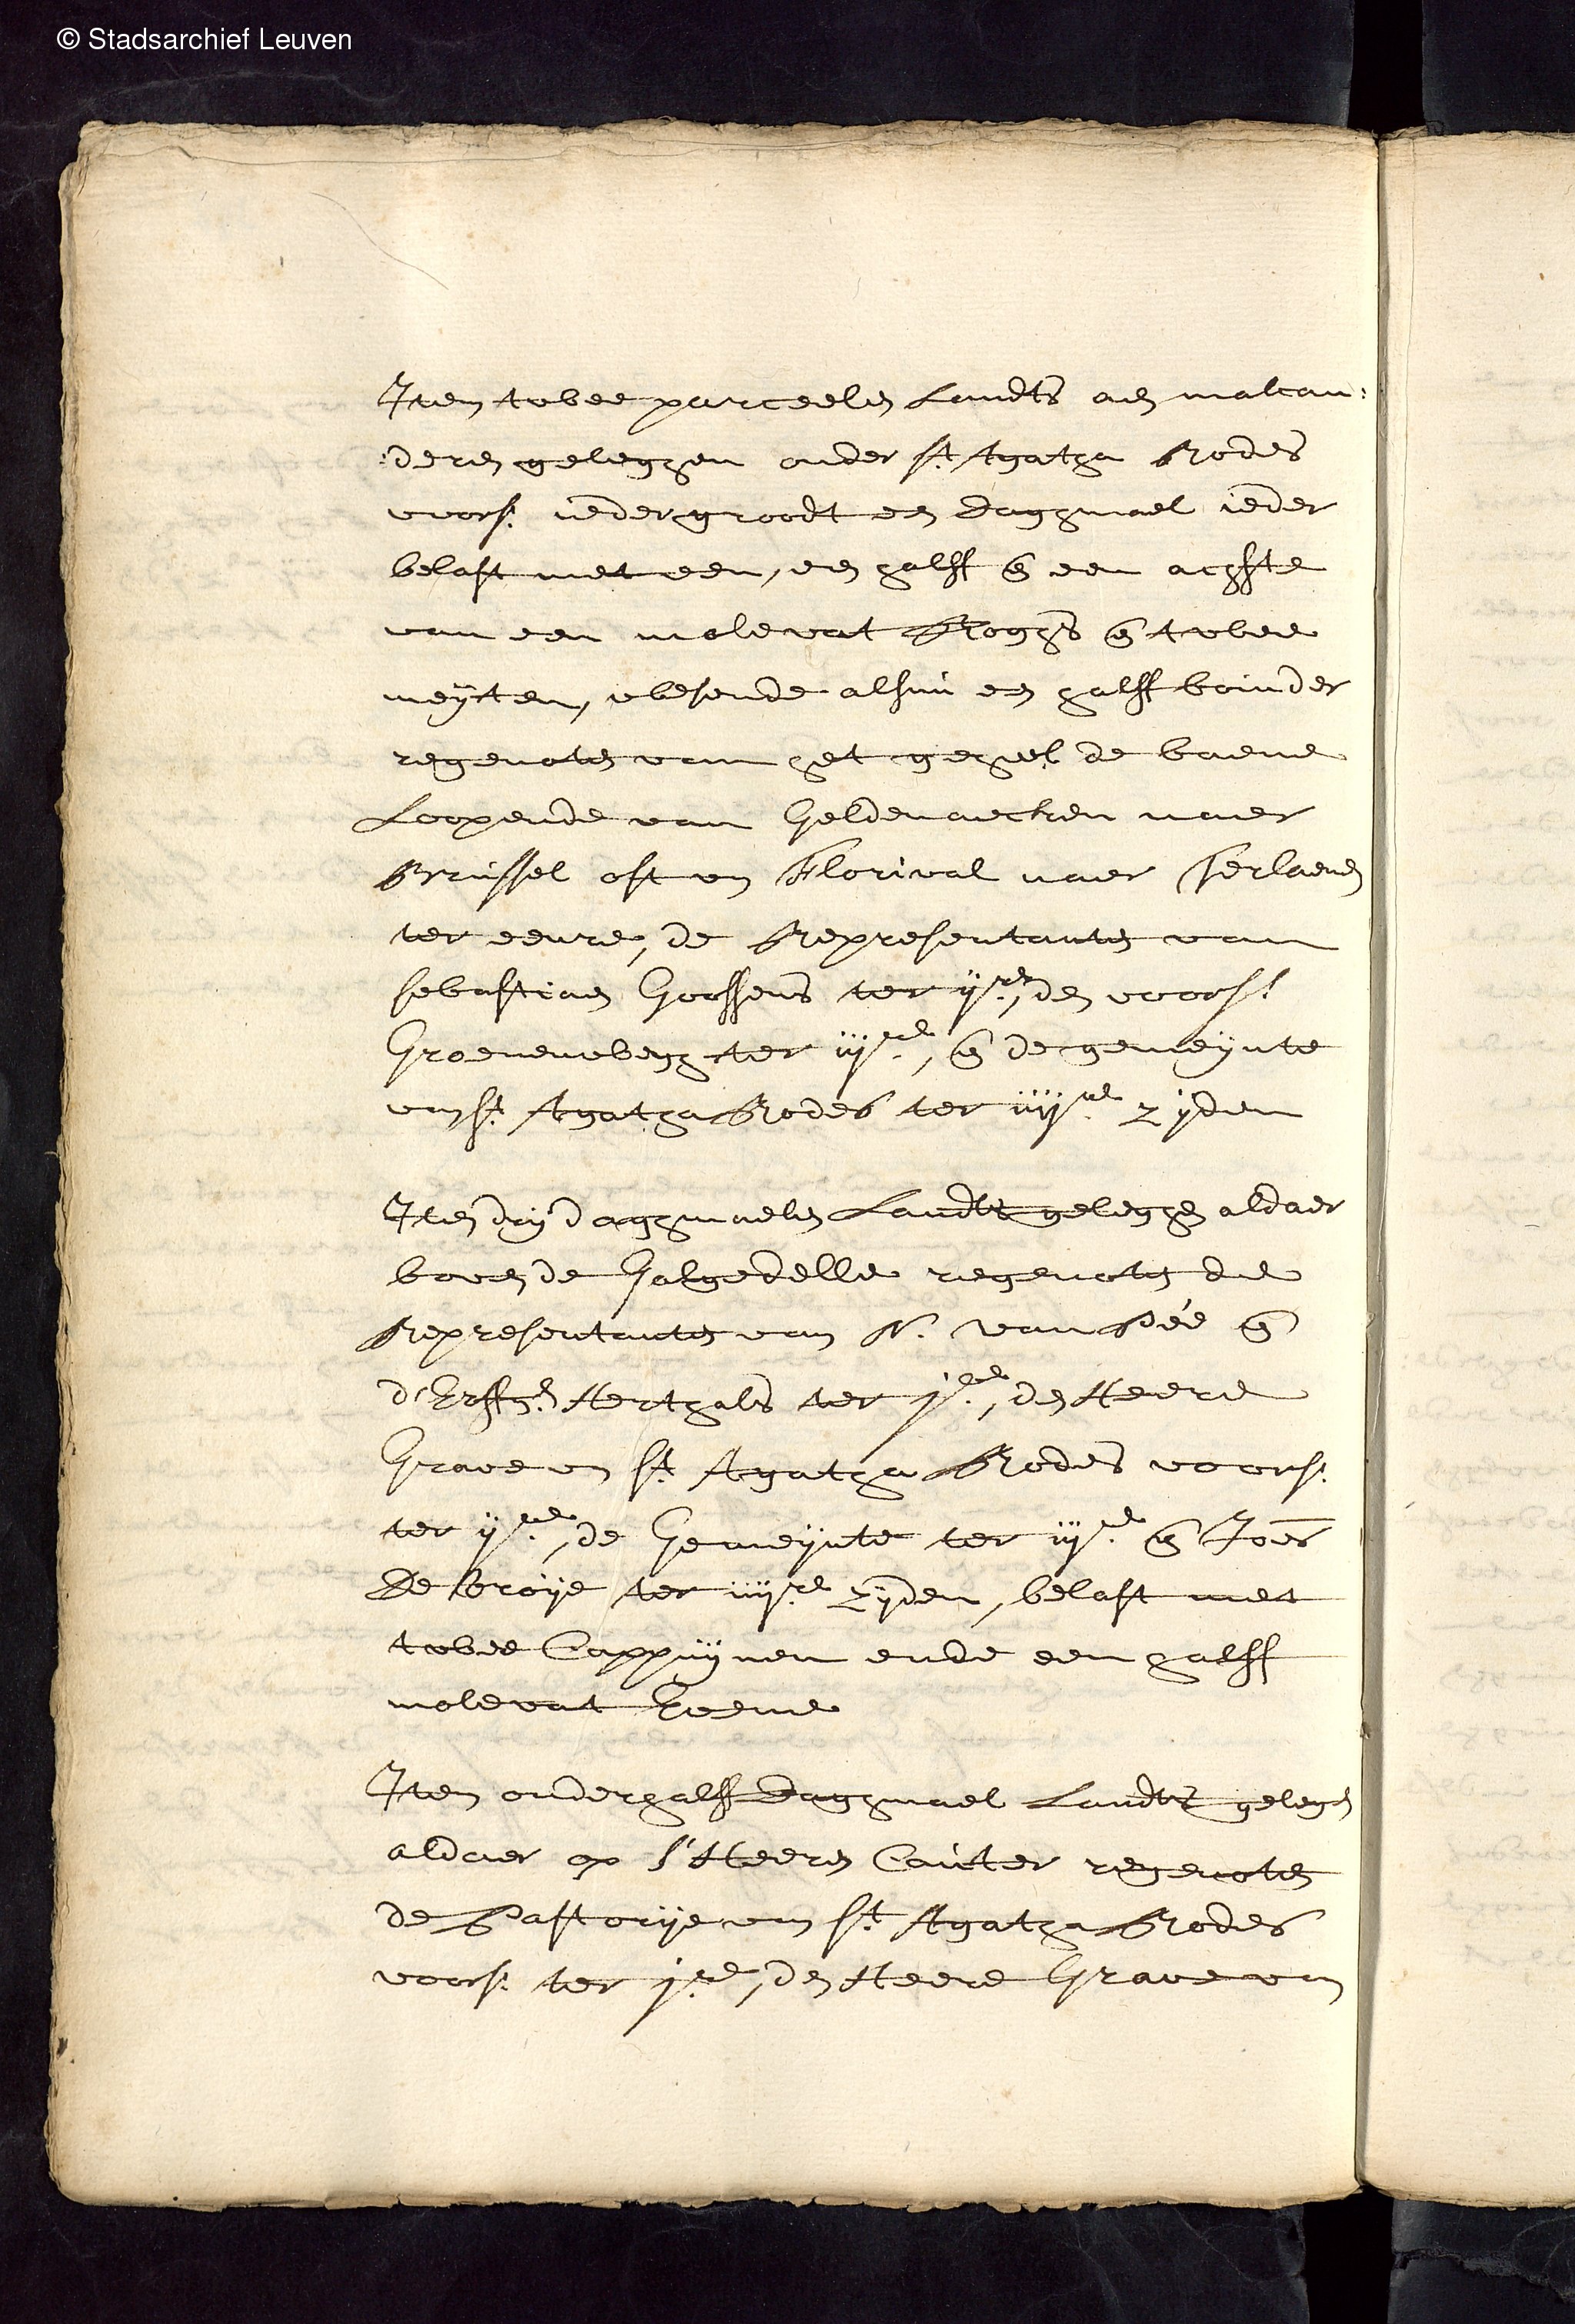 © Stadsarchief Leuven
Item twee parceelen Landts aen malcan:
:deren geleghen onder st Agatha Rodes
voors: ieder groodt een daghmael ieder
belast met een, een halff en een achste
van een molevat Roghs en twee
meyten, wesende alsnu een halff boinder
regenoten van het geheel de baene
Loopende van Geldenaecken naer
Brussel oft van Florival naer
ter eenre, de Representanten van
sebastiaen Goossens ter ijre, den voors:
Groenenwegh ter iijre, en de gemeynte
van st Agatha Rodes ter iiijre zijden
Item drij daghmaelen Landts geleghen aldaer
boven de Galgedelle regenoten de
Representanten van N. van Pée en
d'Erffgen: Herthals ter jre, den Heere
Grave van st Agatha Rodes voors:
ter ijre, de Gemeynte ter iijre en Joes
De Broije ter iiijre zijden, belast met
twee Cappuynen ende een halff
molevat Evene
Item onderhalff daghmael Landts gelegen
aldaer op s'Heeren Cauter regenoten
de Pastorije van st Agatha Rodes
voors: ter jre, den Heere Grave van